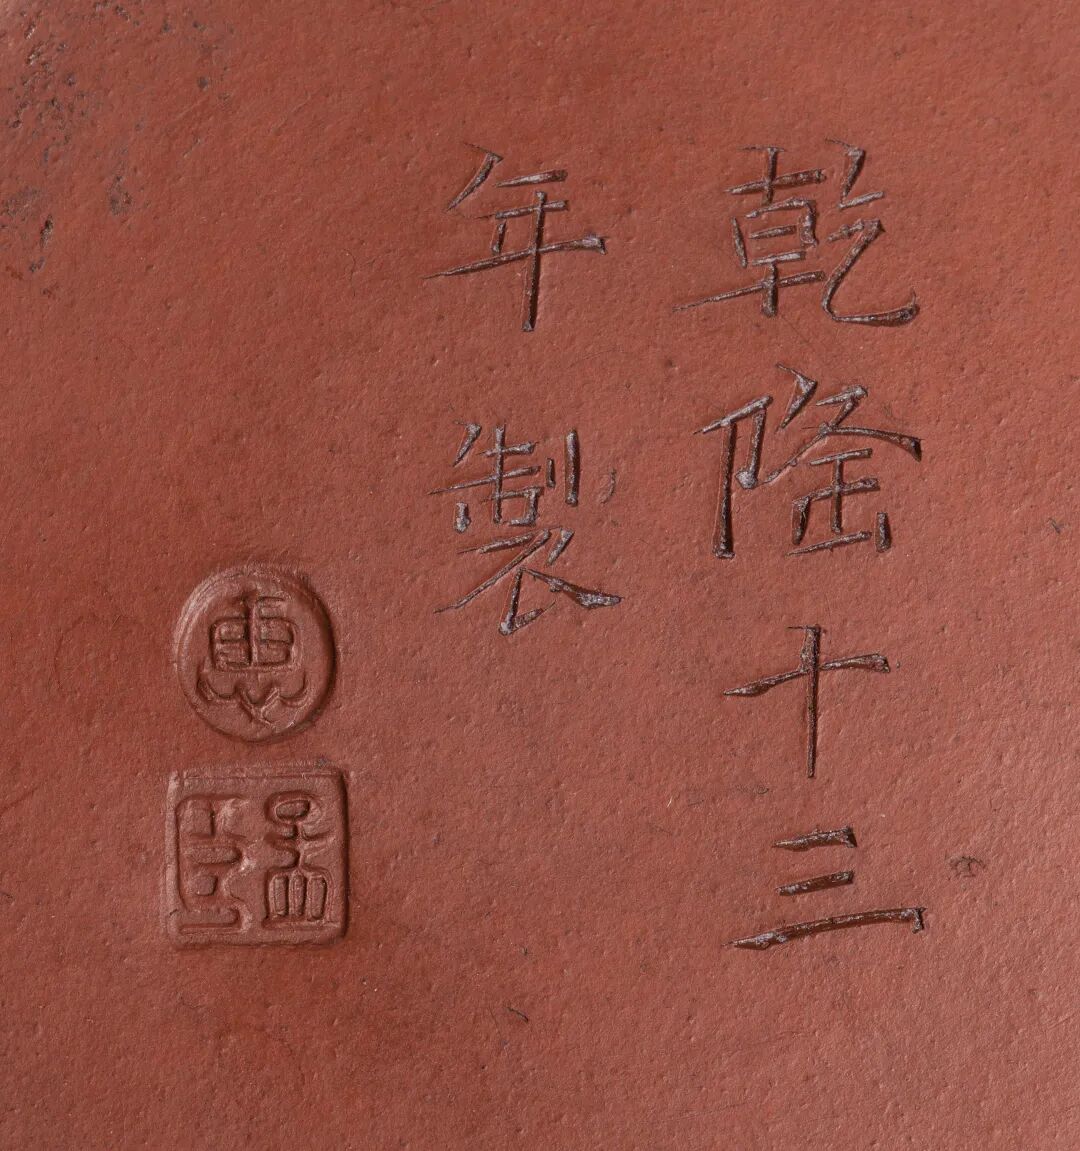 乾隆十三
年製
惠
孟臣